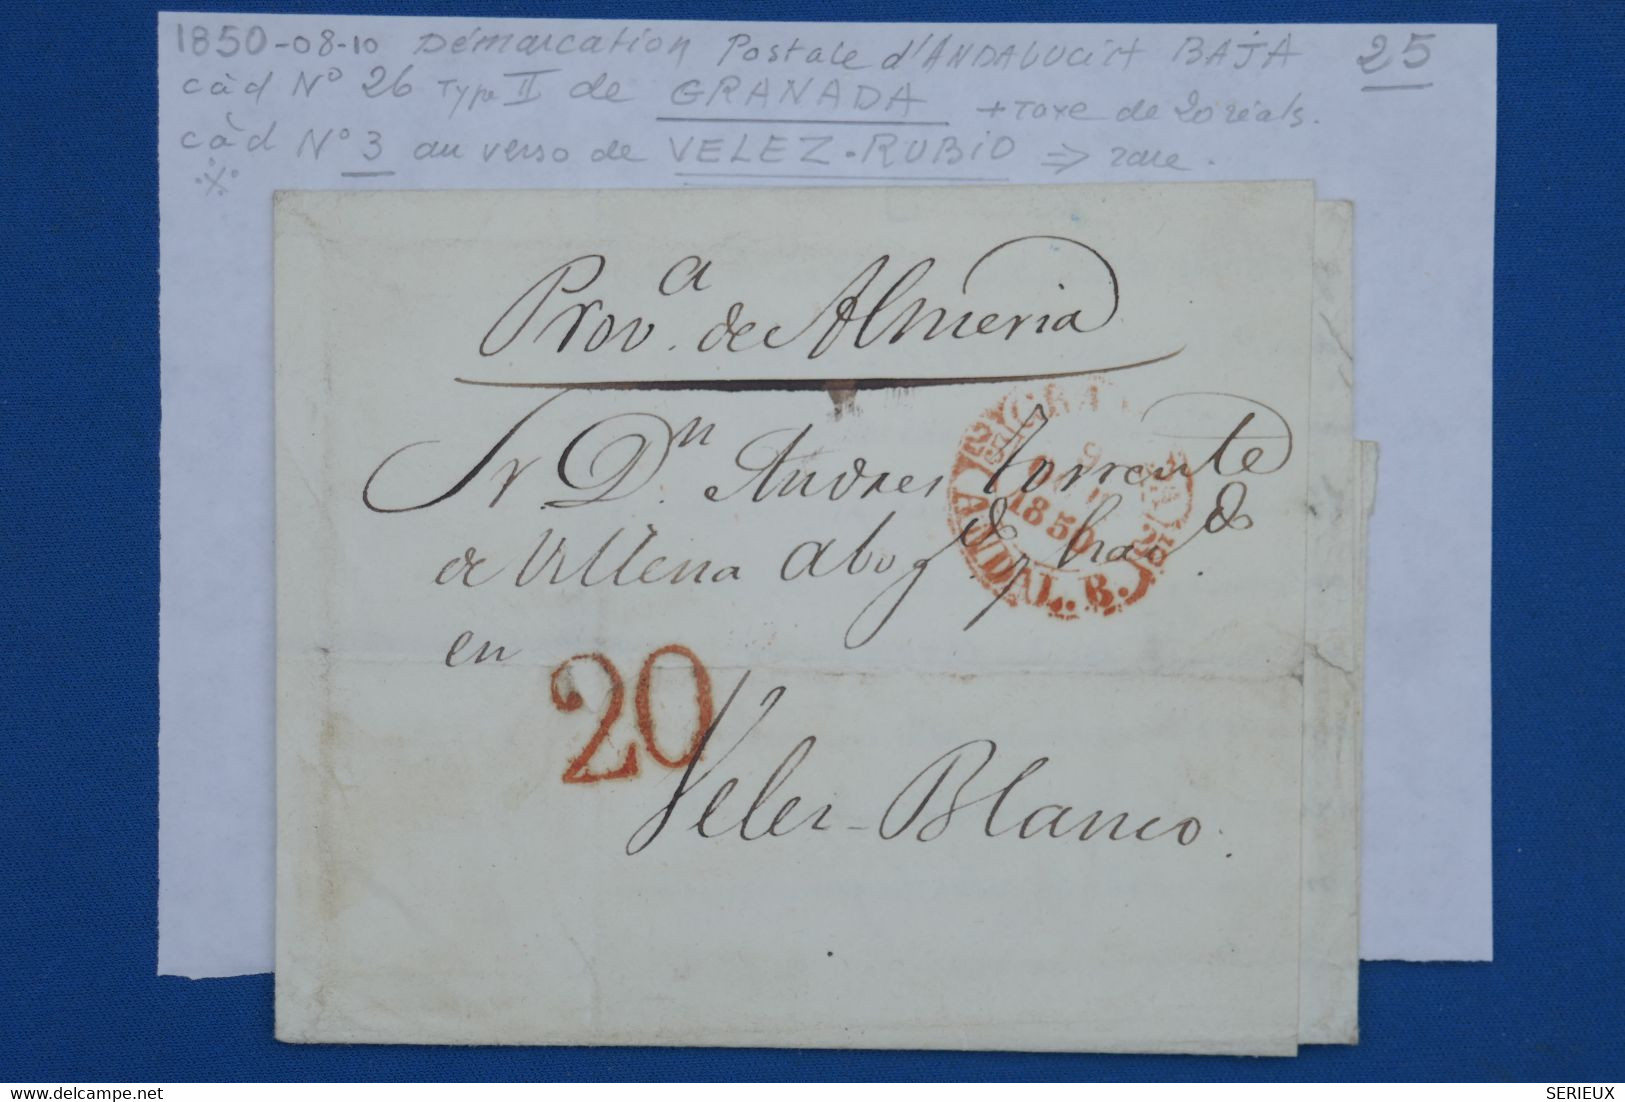 1850-08-10 Démarcation Postale d'ANDALUCIA BAJA 25
càd N° 26 Type II de GRANADA + Taxe de 20 réals.
càd N° 3 au verso de VELEZ-RUBIO ⇒ rare.
Prov.a de Almeria
Sr Dn. Andres Torrente
de Villena Abogdo y hacdo
en
20
Velez-Blanco.
GRA
9
1850
ANDAL. B.
SERIEUX